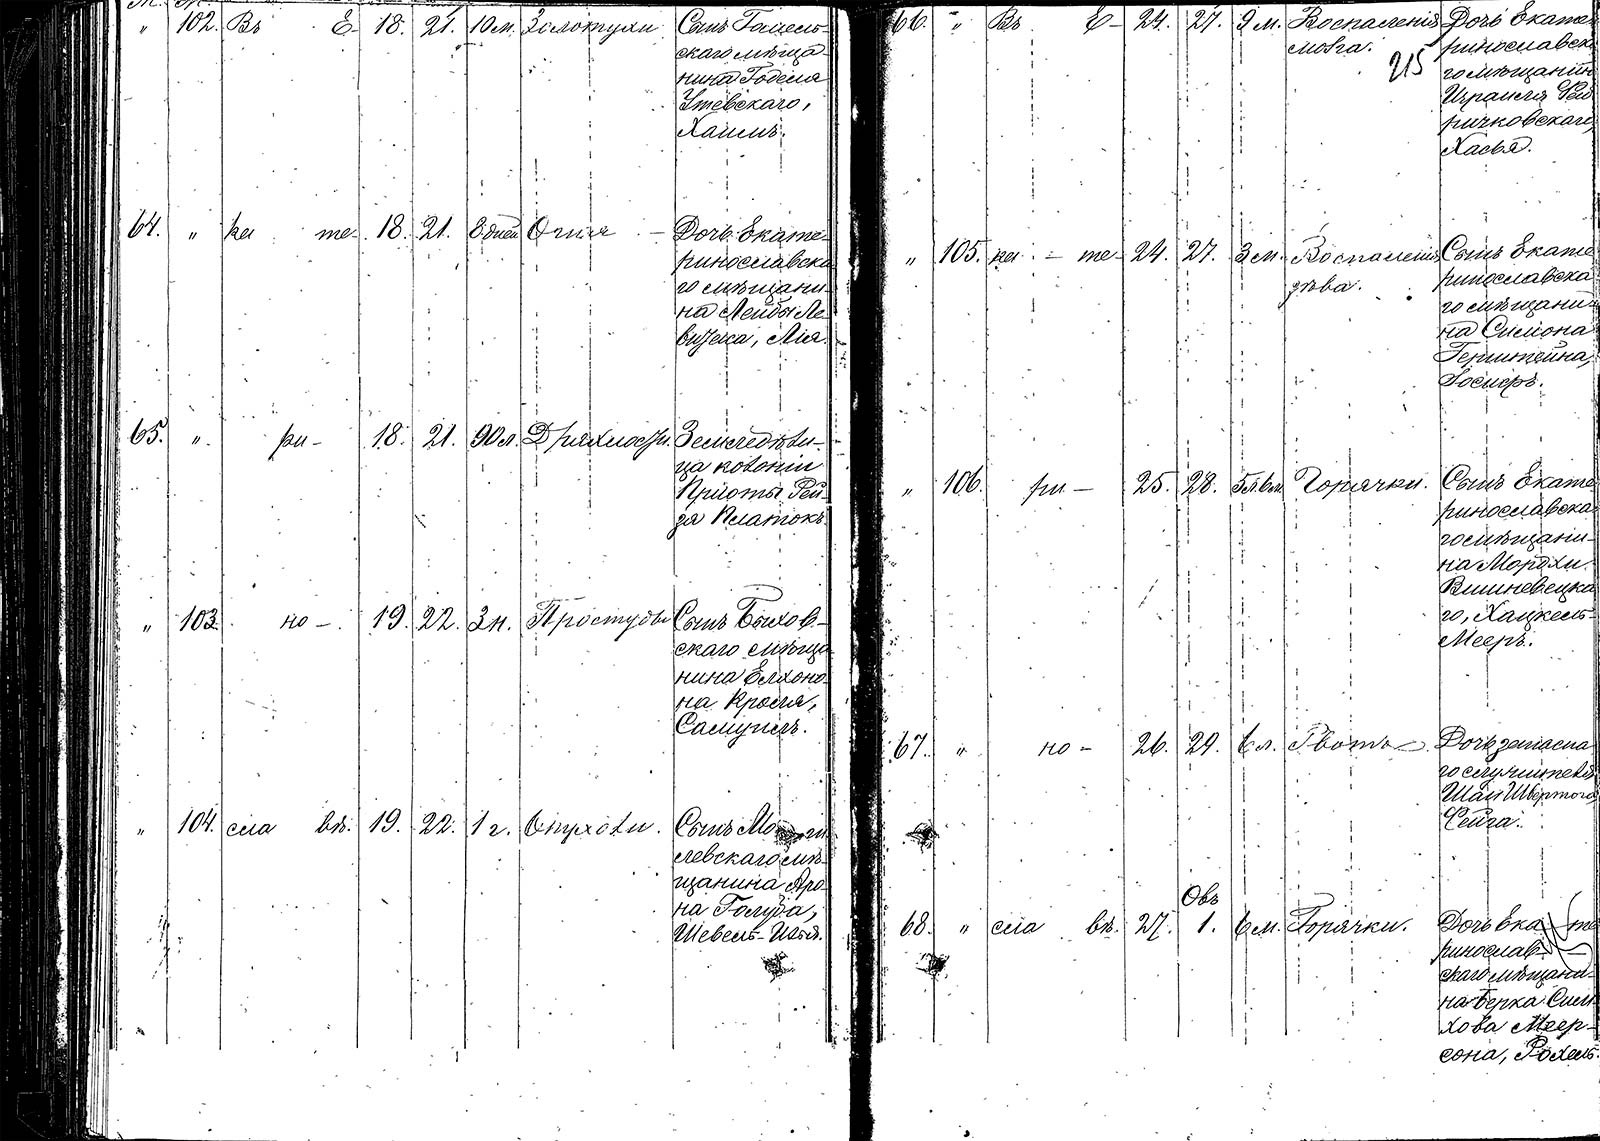 " 102. Въ Е- 18. 21. 10 м. Золотухи Сынъ Гомель-
скаго мѣща
нина Годеля
Утевскаго,
Хаимъ.
64. " ка те- 18. 21. 8 дней Огня - Дочь Екате-
ринославска
го мѣщани-
на Лейбы Ле-
витека, Лія.
65. " ри- 18. 21. 90 л. Дряхлости. Земледѣли-
ца колоніи
Пріюты Рей-
зя Платокъ.
" 103. но-. 19. 22. 3 н. Простуды Сынъ Быхов-
скаго мѣща
нина Елхоно-
на Кроля,
Самуилъ.
" 104. сла вѣ. 19. 22. 1 г. Опухоли. Сынъ Моги
левскаго мѣ-
щанина Аро-
на Голуба,
Шевель-Илья.
66. " Въ Е- 24. 27. 9 м. Воспаленія Дочь Екате-
мозга. ринославска
215
го мѣщанин
Израиля
ричковскаго,
Хасья.
" 105. ка - те- 24. 27. 3 м. Воспаленія Сынъ Екате
зѣва. ринославска
го мѣщани-
на Симона
Герштейна,
Іосифъ.
" 106. ри- 25. 28. 5 л. 6 м. Горячки. Сынъ Екате
ринославска
го мѣщани-
на Мордхи
Вишневецка
го, Хацкель-
Мееръ.
67. " но- 26. 29. 6 л. Рвоты Дочь запасна
го служителя
Шаи Швертога
Сейга.
Овъ
68. " сла вѣ. 27. 1. 6 м. Горячки. Дочь Ека те
ринослав-
скаго мѣщани-
на Берка Сим
хова Меер-
сона, Рохель.